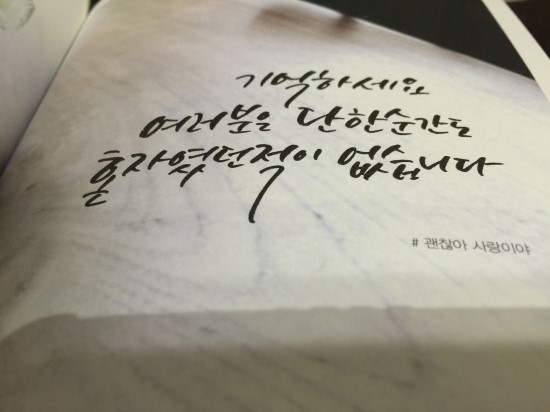 기억하세요
여러분은 단한순간도
혼자였던적이 없습니다
# 괜찮아 사랑이야